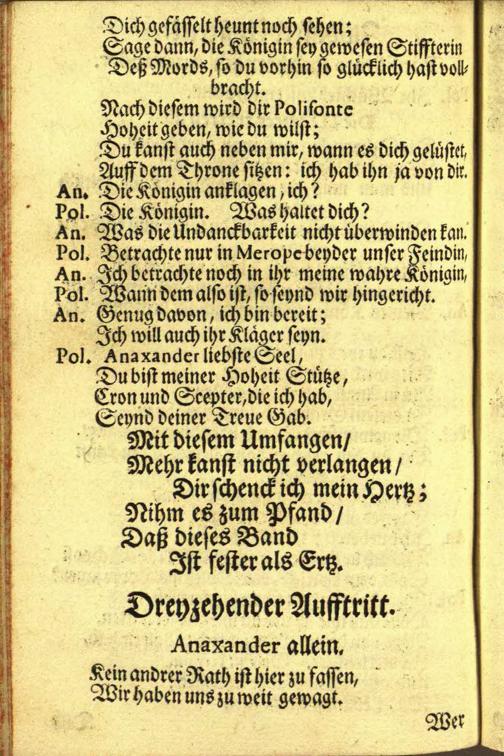 Dich gefässelt heunt noch sehen;
Sage dann, die Königin sey gewesen Stiffterin
Deß Mords, so du vorhin so glücklich hast voll-
bracht.
Nach diesem wird dir Polifonte
Hoheit geben, wie du wilst;
Du kanst auch neben mir, wann es dich gelüstet,
Auff dem Throne sitzen: ich hab ihn ja von dir.
An. Die Königin anklagen, ich?
Pol. Die Königin. Was haltet dich?
An. Was die Undanckbarkeit nicht überwinden kan.
Pol. Betrachte nur in Merope beyder unser Feindin,
An. Ich betrachte noch in ihr meine wahre Königin,
Pol. Wann dem also ist, so seynd wir hingericht.
An. Genug davon, ich bin bereit;
Ich will auch ihr Kläger seyn.
Pol. Anaxander liebste Seel,
Du bist meiner Hoheit Stütze,
Cron und Scepter, die ich hab,
Seynd deiner Treue Gab.
Mit diesem Umfangen/
Mehr kanst nicht verlangen/
Dir schenck ich mein Hertz;
Nihm es zum Pfand/
Daß dieses Band
Ist fester als Ertz.
Dreyzehender Aufftritt.
Anaxander allein.
Kein andrer Rath ist hier zu fassen,
Wir haben uns zu weit gewagt.
Wer